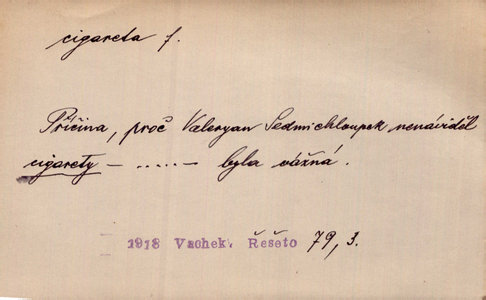 cigareta f.
Příčina, proč Valeryan Sedmichloupek nenáviděl
cigarety — ..... — byla vážná.
1918 Vachek, Řešeto 79, 3.